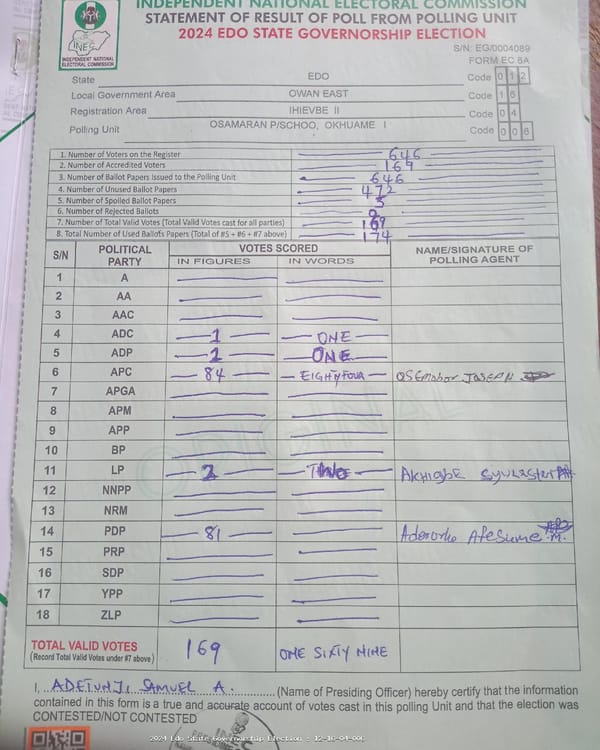 INDEPENDENT NATIONAL ELECTORAL COMMISSION
STATEMENT OF RESULT OF POLL FROM POLLING UNIT
2024 EDO STATE GOVERNORSHIP ELECTION
INEC
INDEPENDENT NATIONAL
ELECTORAL COMMISSION
S/N: EG/0004089
FORM EC 8A
State EDO Code 0 1 2
Local Government Area OWAN EAST Code 1 6
Registration Area IHIEVBE II Code 0 4
Polling Unit OSAMARAN P/SCHOO, OKHUAME I Code 0 0 6
1. Number of Voters on the Register 646
2. Number of Accredited Voters 169
3. Number of Ballot Papers Issued to the Polling Unit 646
4. Number of Unused Ballot Papers 472
5. Number of Spoiled Ballot Papers 5
6. Number of Rejected Ballots
7. Number of Total Valid Votes (Total Valid Votes cast for all parties) 169
8. Total Number of Used Ballots Papers (Total of #5 + #6 + #7 above) 174
S/N POLITICAL PARTY VOTES SCORED NAME/SIGNATURE OF POLLING AGENT
IN FIGURES IN WORDS
1 A
2 AA
3 AAC
4 ADC 1 ONE
5 ADP 1 ONE
6 APC 84 EIGHTYFOUR OSEMOBOR JOSEPH
7 APGA
8 APM
9 APP
10 BP
11 LP 2 TWO AKHIGBE
12 NNPP
13 NRM
14 PDP 81 Afesume
15 PRP
16 SDP
17 YPP
18 ZLP
TOTAL VALID VOTES 169 ONE SIXTY NINE
(Record Total Valid Votes under #7 above)
I, ADETUNJI SAMUEL A. (Name of Presiding Officer) hereby certify that the information
contained in this form is a true and accurate account of votes cast in this polling Unit and that the election was
CONTESTED/NOT CONTESTED
ORIGINAL
2024 Edo State Governorship Election : 12-16-04-006